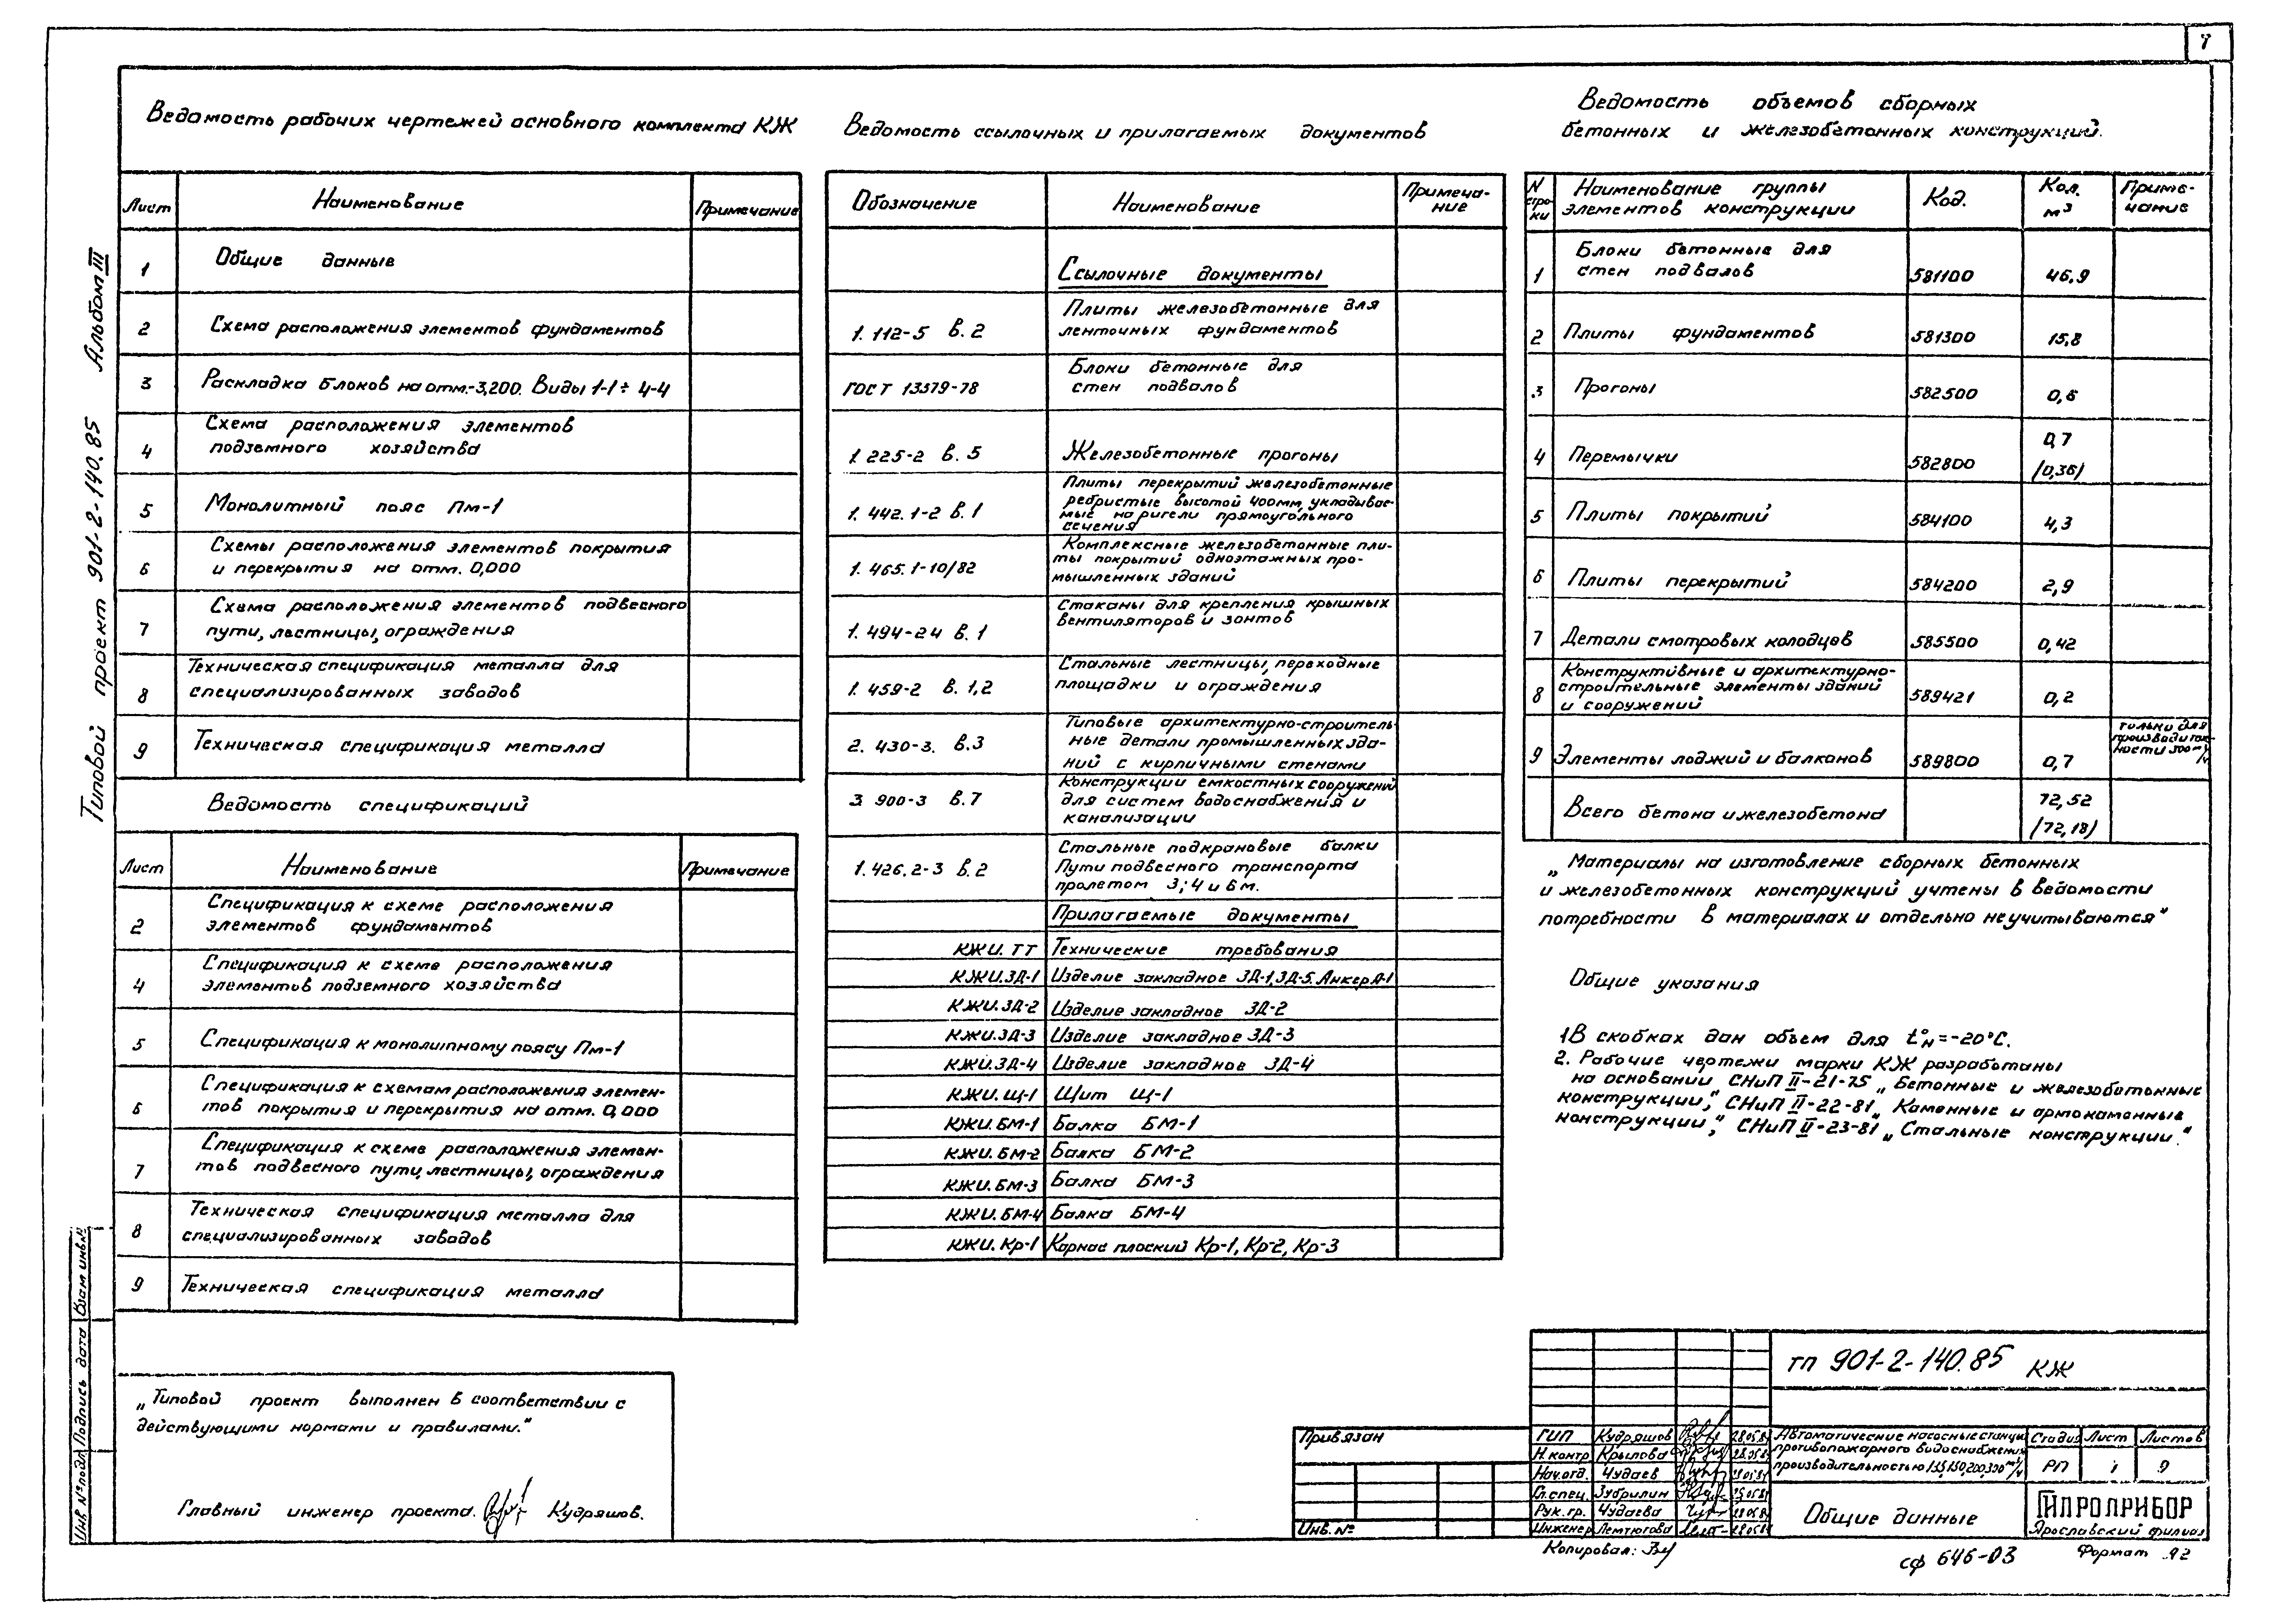 7
Типовой проект 901-2-140.85 Альбом III
Ведомость рабочих чертежей основного комплекта КЖ
Лист Наименование Примечание
1 Общие данные
2 Схема расположения элементов фундаментов
3 Раскладка блоков на отм.-3,200. Виды 1-1÷4-4
Схема расположения элементов
4 подземного хозяйства
5 Монолитный пояс Пм-1
Схемы расположения элементов покрытия
6 и перекрытия на отм. 0,000
Схема расположения элементов подвесного
7 пути, лестницы, ограждения
Техническая спецификация металла для
8 специализированных заводов
9 Техническая спецификация металла
Ведомость спецификаций
Лист Наименование Примечание
Спецификация к схеме расположения
2 элементов фундаментов
Спецификация к схеме расположения
4 элементов подземного хозяйства
5 Спецификация к монолитному поясу Пм-1
Спецификация к схемам расположения элемен-
6 тов покрытия и перекрытия на отм. 0,000
Спецификация к схеме расположения элемен-
7 тов подвесного пути, лестницы, ограждения
Техническая спецификация металла для
8 специализированных заводов
9 Техническая спецификация металла
„Типовой проект выполнен в соответствии с
действующими нормами и правилами.“
Главный инженер проекта. Кудряшов.
Инв. № подл. Подпись дата Взам инв. №
Ведомость ссылочных и прилагаемых документов
Обозначение Наименование Примеча-
ние
Ссылочные документы
Плиты железобетонные для
1. 112-5 в. 2 ленточных фундаментов
Блоки бетонные для
ГОСТ 13579-78 стен подвалов
1. 225-2 в. 5 Железобетонные прогоны
Плиты перекрытий железобетонные
ребристые высотой 400мм, укладывае-
1. 442. 1-2 в. 1 мые на ригели прямоугольного
сечения
Комплексные железобетонные пли-
1. 465. 1-10/82 ты покрытий одноэтажных про-
мышленных зданий
Стаканы для крепления крышных
1. 494-24 в. 1 вентиляторов и зонтов
Стальные лестницы, переходные
1. 459-2 в. 1,2 площадки и ограждения
Типовые архитектурно-строитель-
2. 430-3. в.3 ные детали промышленных зда-
ний с кирпичными стенами
Конструкции емкостных сооружений
3. 900-3 в. 7 для систем водоснабжения и
канализации
Стальные подкрановые балки
1. 426. 2-3 в. 2 Пути подвесного транспорта
пролетом 3; 4 и 6 м.
Прилагаемые документы
КЖИ. ТТ Технические требования
КЖИ.ЗД-1 Изделие закладное ЗД-1, ЗД-5. Анкер А-1
КЖИ.ЗД-2 Изделие закладное ЗД-2
КЖИ.ЗД-3 Изделие закладное ЗД-3
КЖИ.ЗД-4 Изделие закладное ЗД-4
КЖИ. Щ-1 Щит Щ-1
КЖИ. БМ-1 Балка БМ-1
КЖИ. БМ-2 Балка БМ-2
КЖИ. БМ-3 Балка БМ-3
КЖИ. БМ-4 Балка БМ-4
КЖИ. Кр-1 Каркас плоский Кр-1, Кр-2, Кр-3
Ведомость объемов сборных
бетонных и железобетонных конструкций.
N строки Наименование группы элементов конструкции Код. Кол. м³ Приме-
чание
Блоки бетонные для
1 стен подвалов 581100 46,9
2 Плиты фундаментов 581300 15,8
3 Прогоны 582500 0,6
4 Перемычки 582800 0,7
(0,36)
5 Плиты покрытий 584100 4,3
6 Плиты перекрытий 584200 2,9
7 Детали смотровых колодцев 585500 0,42
Конструктивные и архитектурно-
8 строительные элементы зданий 589421 0,2
и сооружений
9 Элементы лоджий и балконов 589800 0,7 только для
производитель-
ности 300 м³/ч
Всего бетона и железобетона 72,52
(72,18)
„Материалы на изготовление сборных бетонных
и железобетонных конструкций учтены в ведомости
потребности в материалах и отдельно не учитываются“
Общие указания
1 В скобках дан объем для t°н=-20°С.
2. Рабочие чертежи марки КЖ разработаны
на основании СНиП II-21-75 „Бетонные и железобетонные
конструкции“, СНиП II-22-81 „Каменные и армокаменные
конструкции“, СНиП II-23-81 „Стальные конструкции.“
тп 901-2-140.85 КЖ
Привязан
Инв. №
ГИП Кудряшов 28.05.84
Н. контр Крылова 28.05.84
Нач. отд. Чудаев
Гл. спец. Зубрилин
Рук. гр. Чудаева
Инженер Лемтюгова
Автоматические насосные станции
противопожарного водоснабжения
производительностью
Стадия Лист Листов
РП 1 9
Общие данные
ГИПРОПРИБОР
Ярославский филиал
Копировал:
сф 646-03
Формат А2